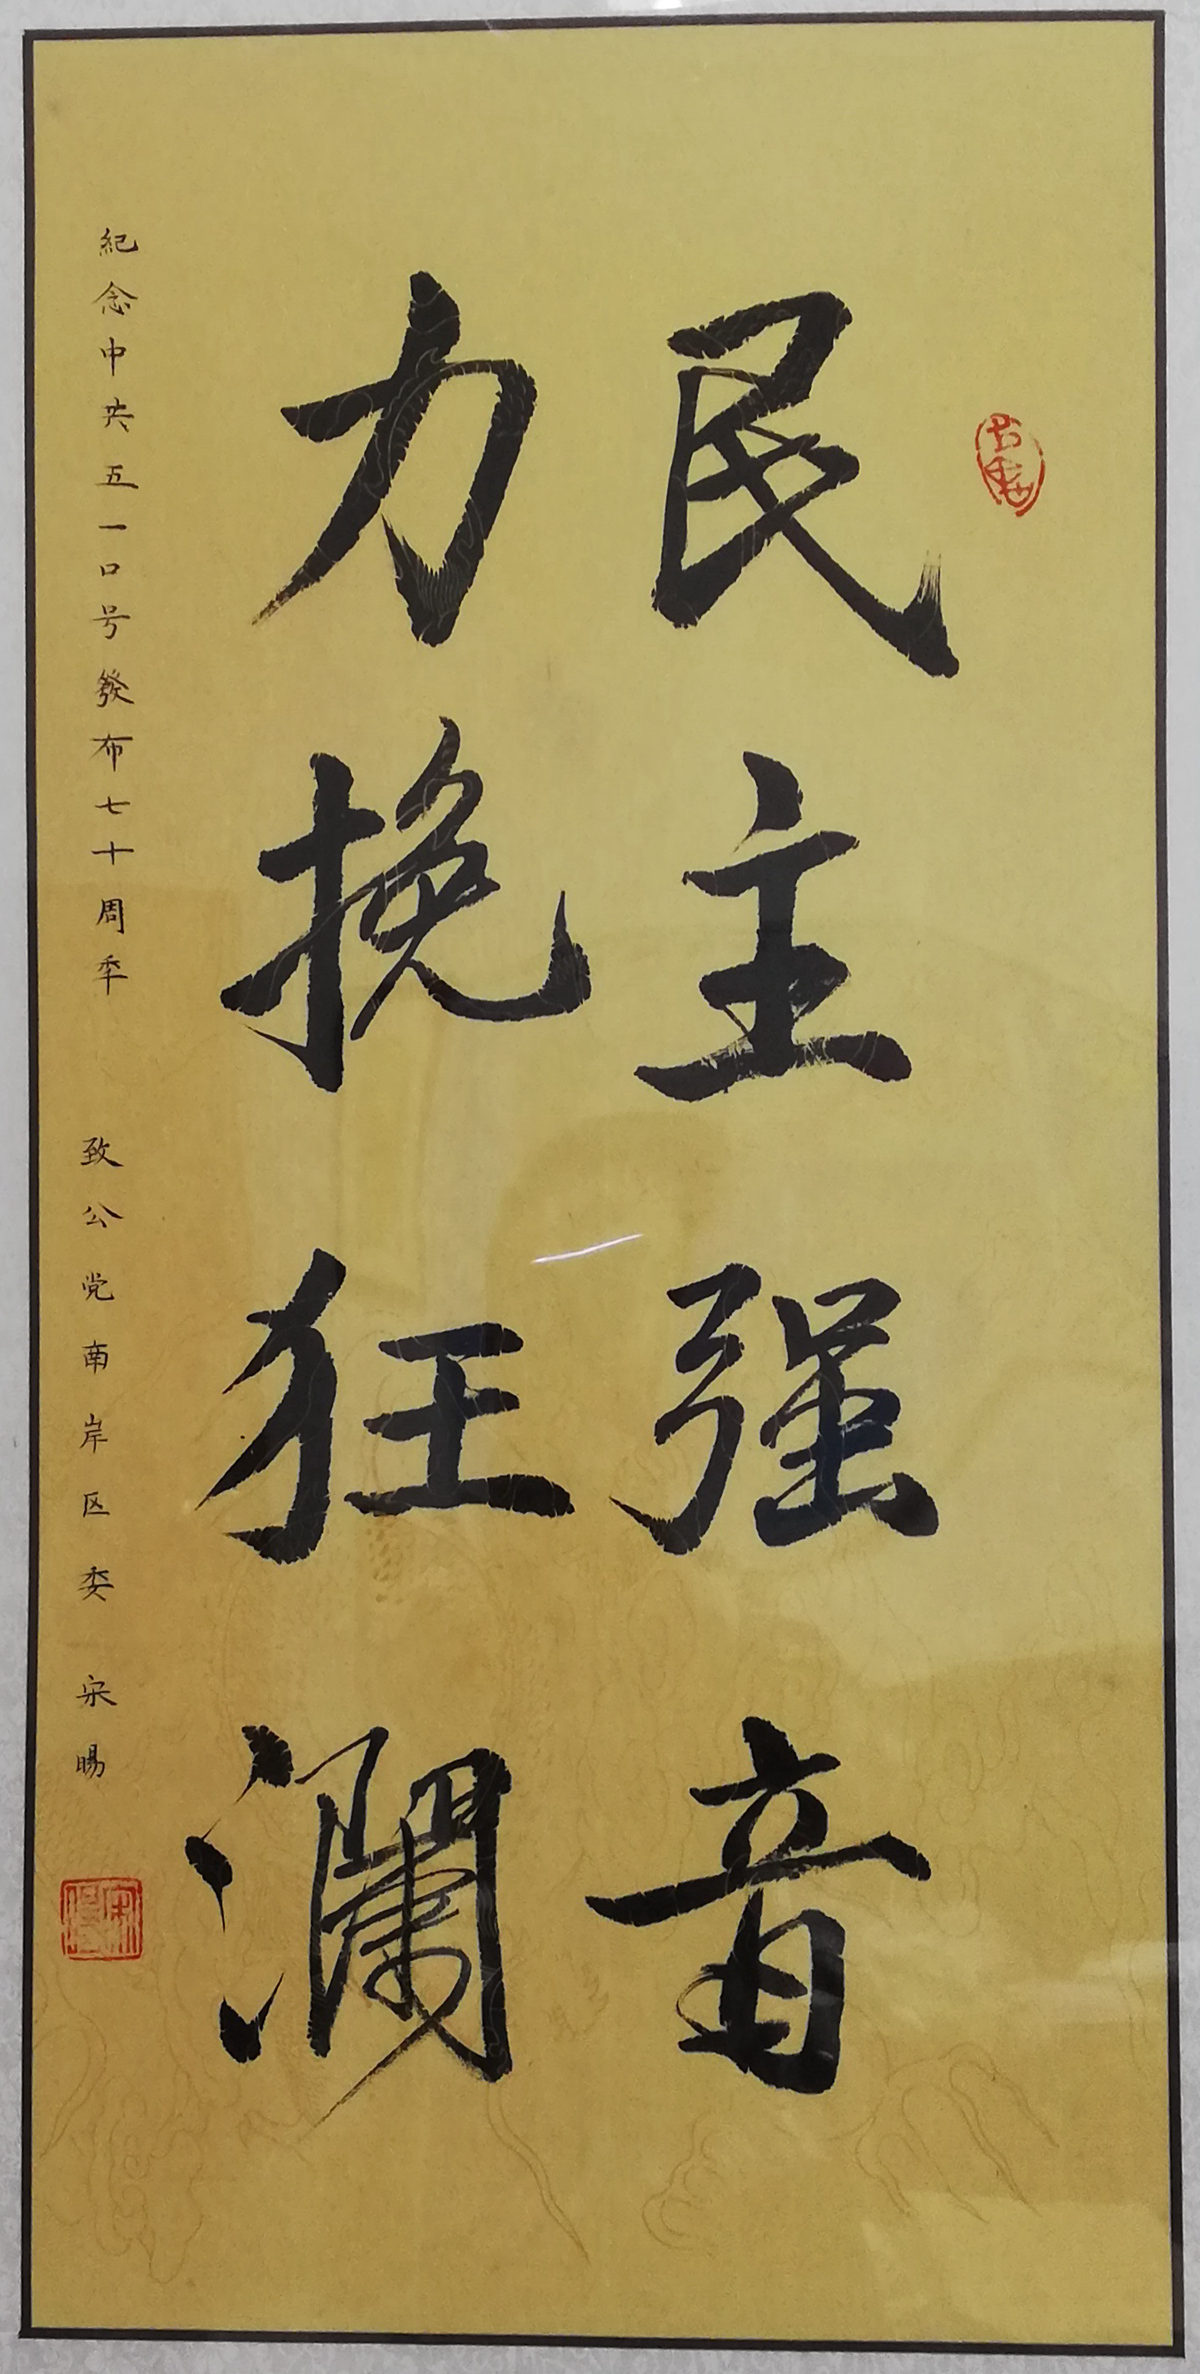 民主强音
力挽狂澜
紀念中共五一口号發布七十周年 致公党南岸区委 宋暘